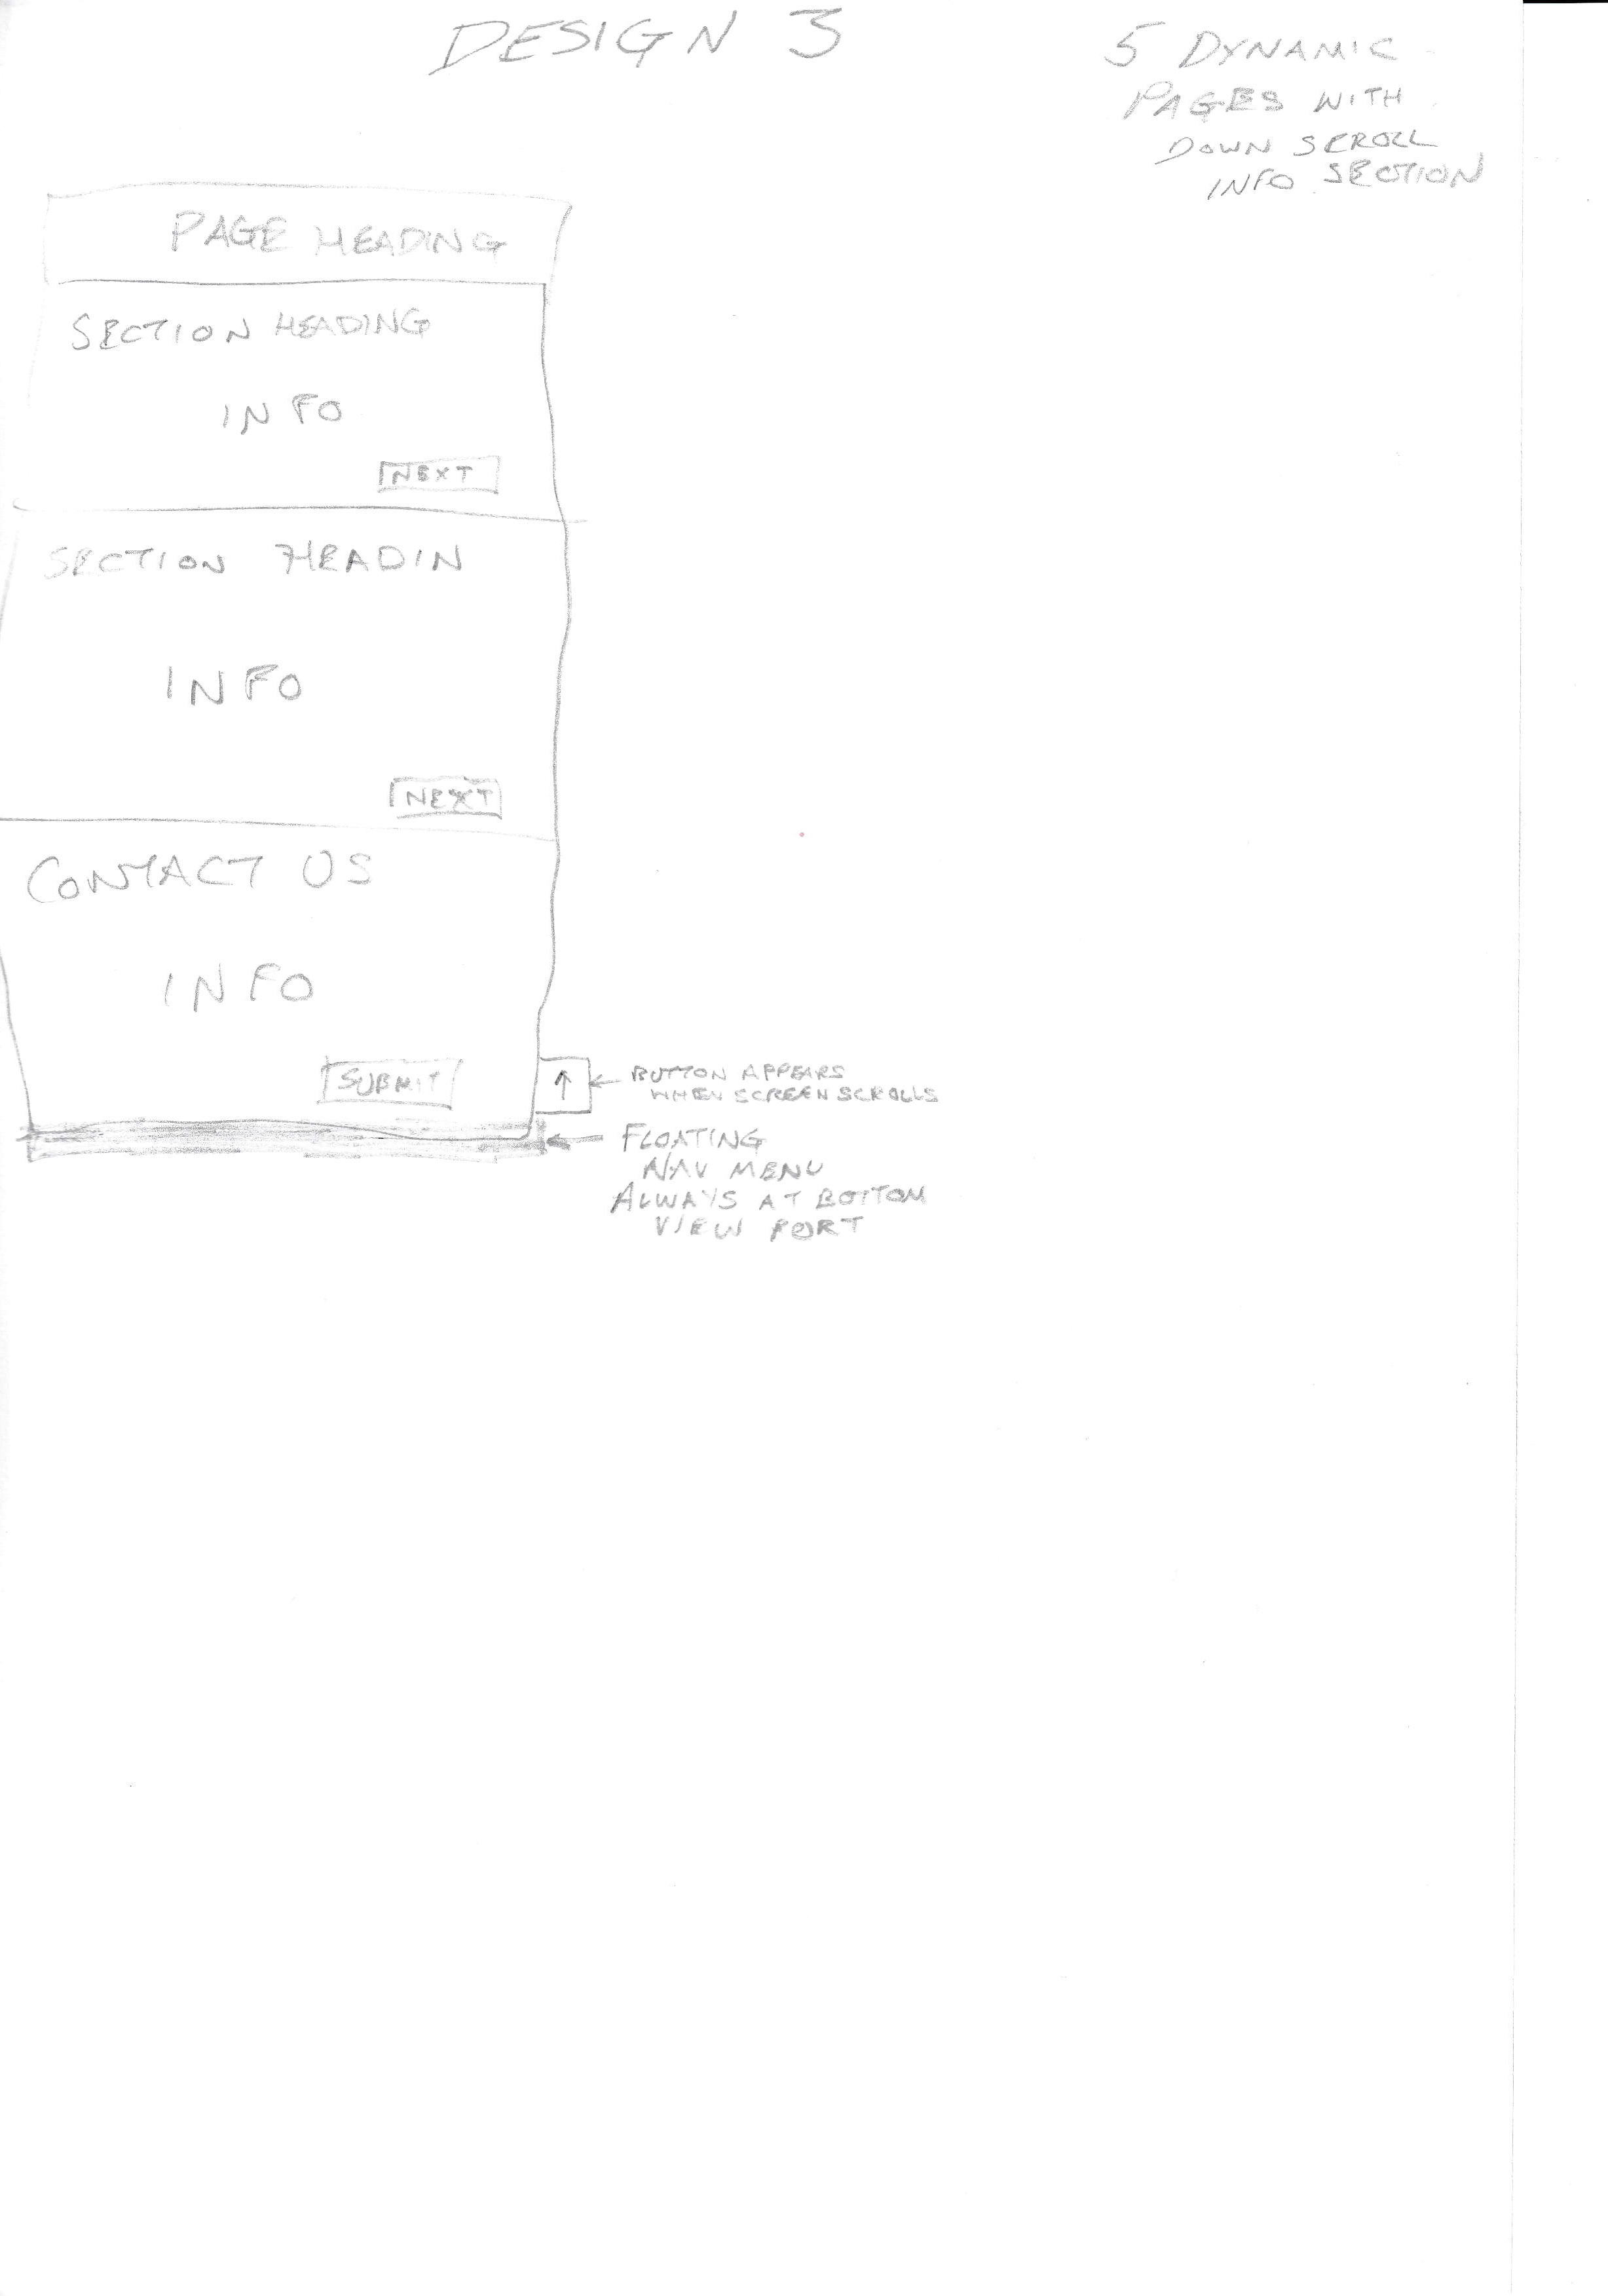 DESIGN 3
5 DYNAMIC
PAGES WITH
DOWN SCROLL
INFO SECTION
PAGE HEADING
SECTION HEADING
INFO
NEXT
SECTION HEADIN
INFO
NEXT
CONTACT US
INFO
SUBMIT
↑
BUTTON APPEARS
WHEN SCREEN SCROLLS
FLOATING
NAV MENU
ALWAYS AT BOTTOM
VIEW PORT